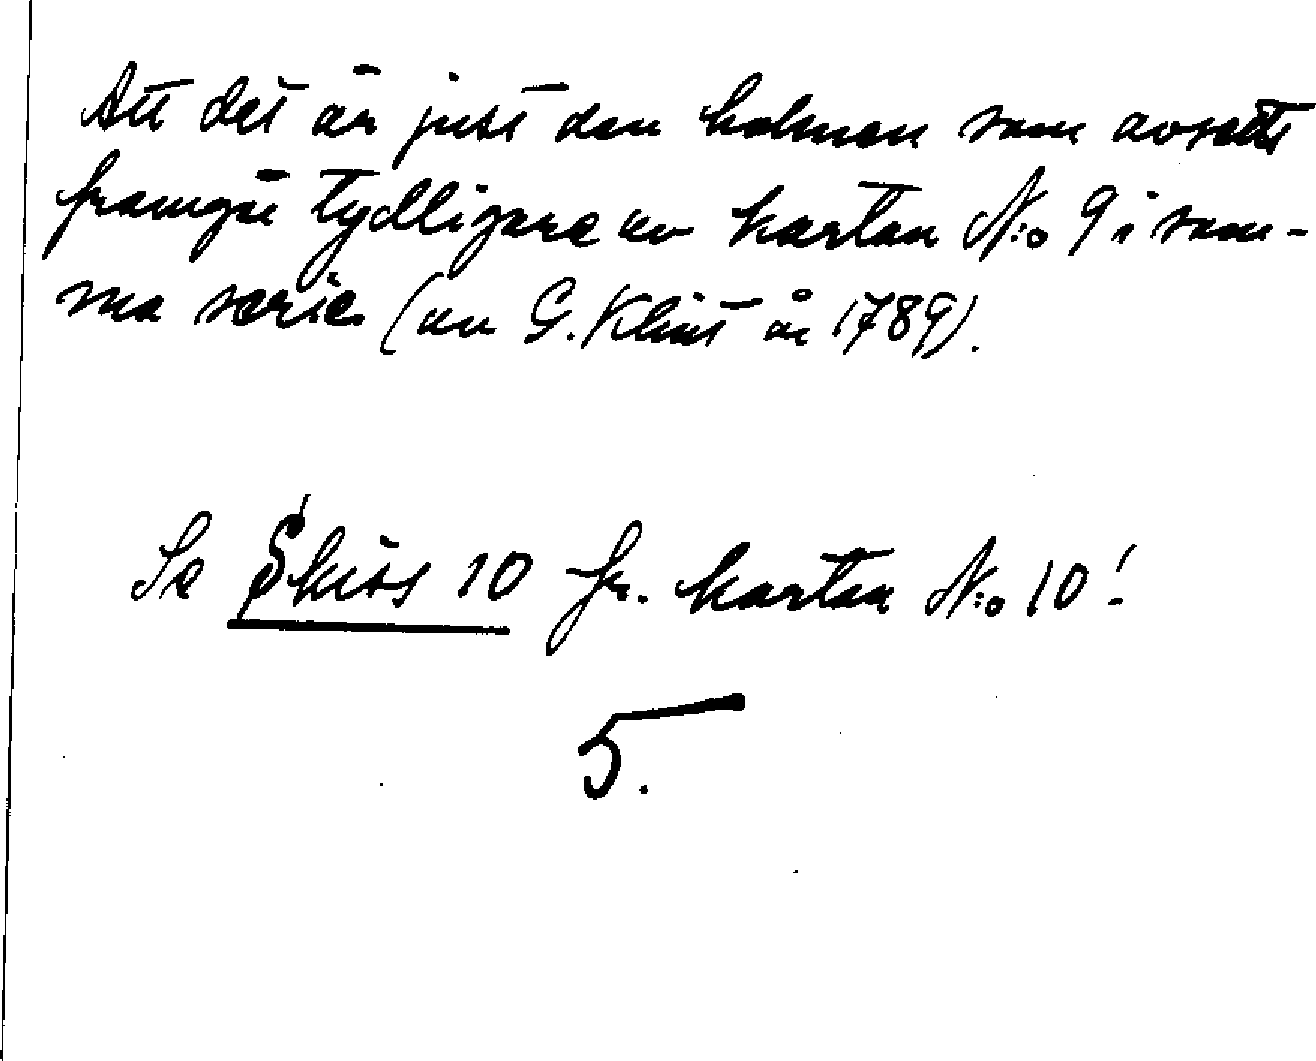 Att det är just den holmen som avsetts
framgår tydligare av kartan N:o 9 i sam-
ma serie (av G. Klint år 1789).
Se Skiss 10 fr. kartan N:o 10!
5.